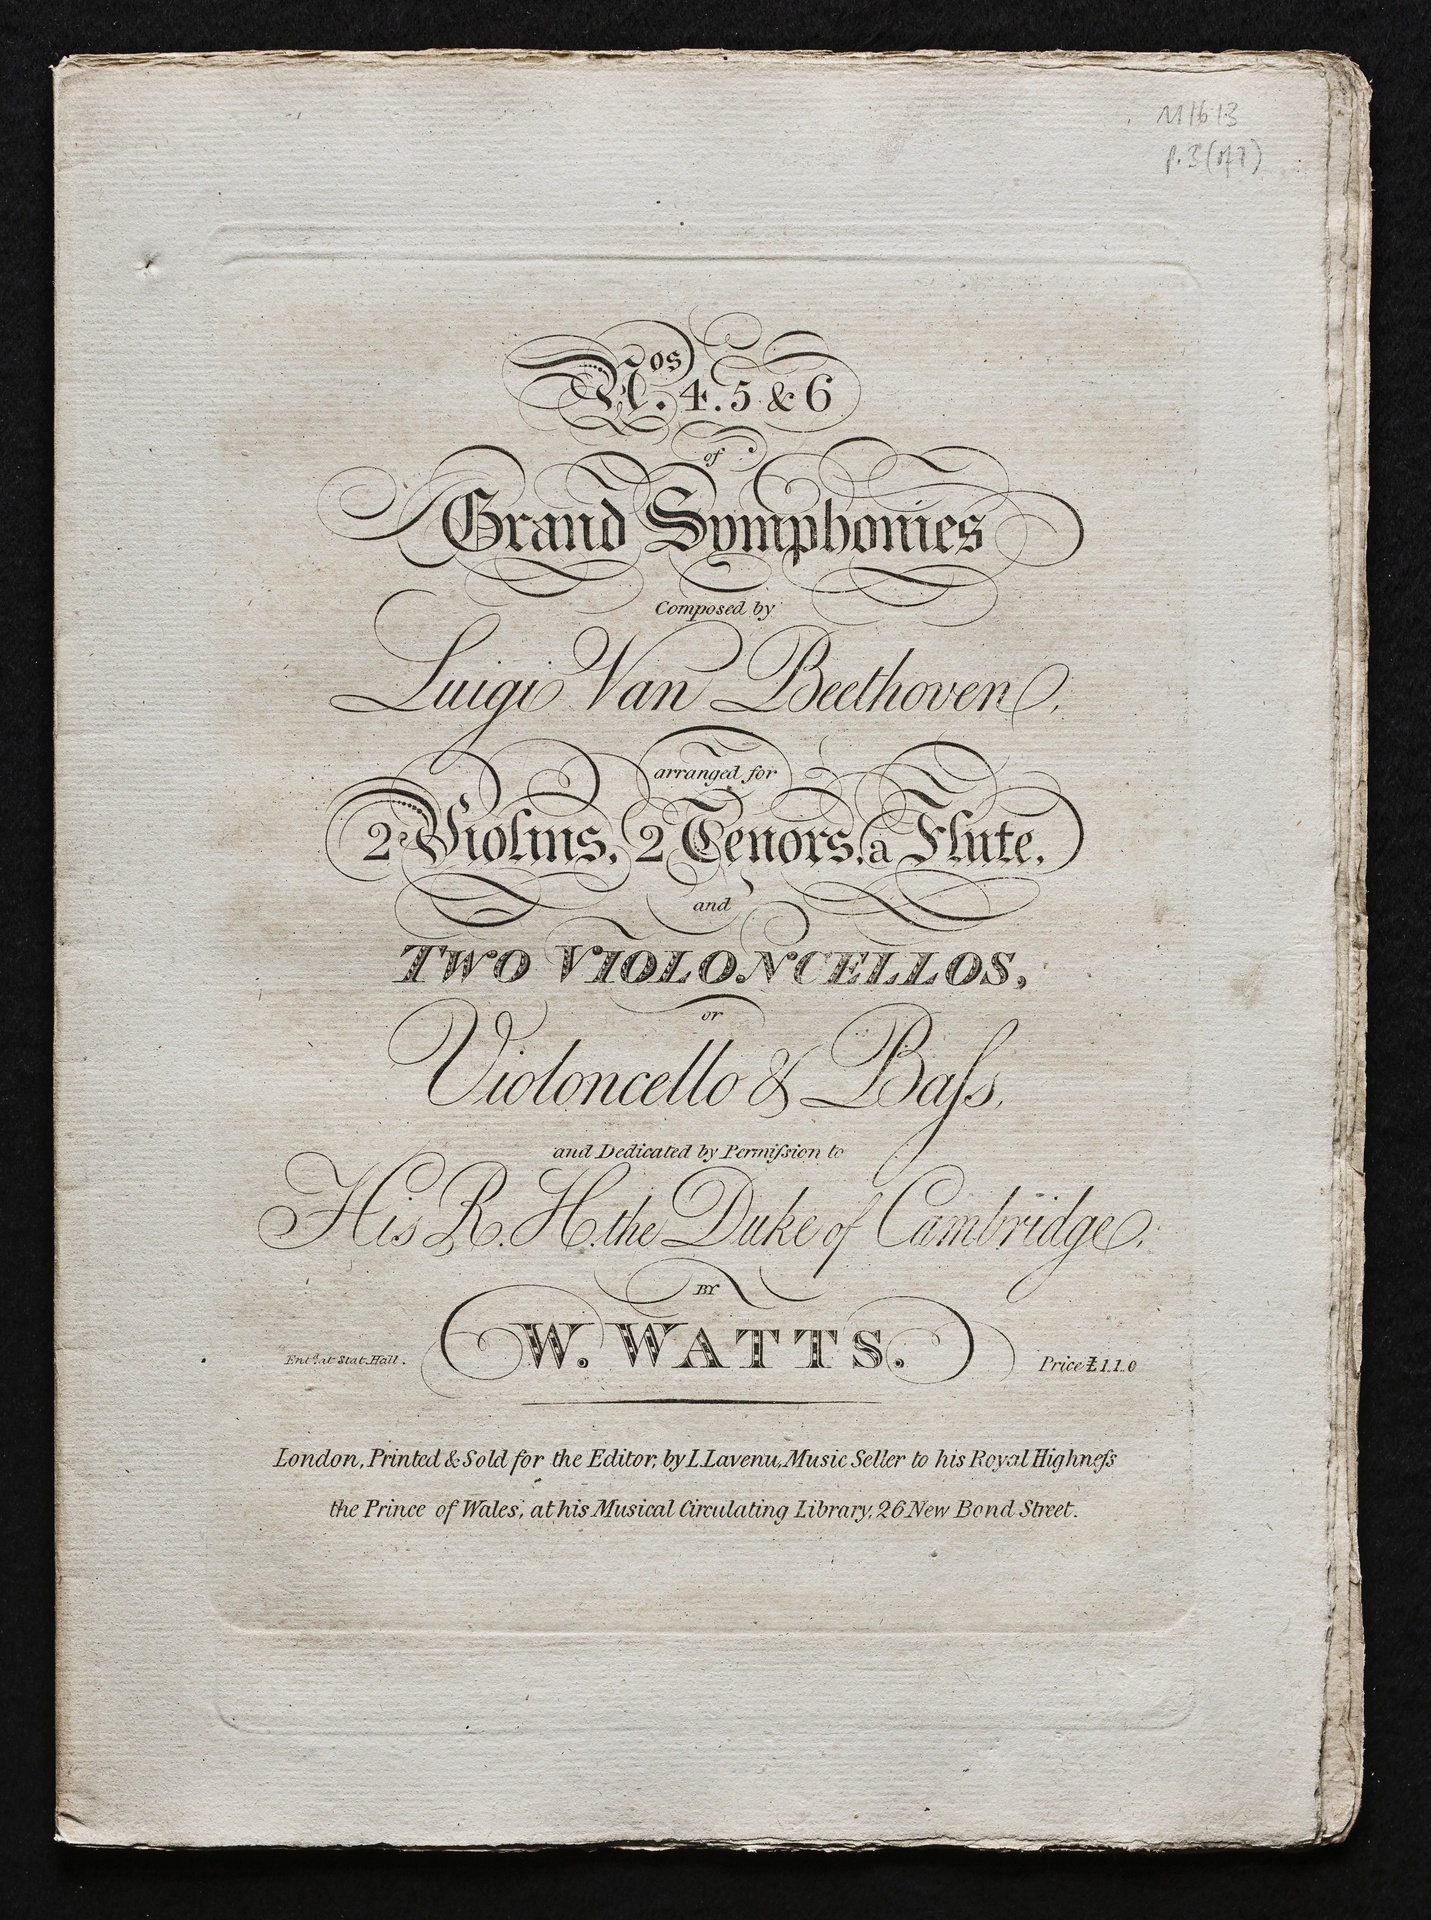 M1613
p. 3 (of 7)
Nos. 4. 5 & 6
of
Grand Symphonies
Composed by
Luigi Van Beethoven,
arranged for
2 Violins, 2 Tenors, a Flute,
and
TWO VIOLONCELLOS,
or
Violoncello & Baſs,
and Dedicated by Permiſsion to
His R. H. the Duke of Cambridge,
BY
W. WATTS.
Entd. at Stat. Hall.
Price £1.1.0
London, Printed & Sold for the Editor, by L. Lavenu, Music Seller to his Royal Highneſs
the Prince of Wales, at his Musical Circulating Library, 26 New Bond Street.